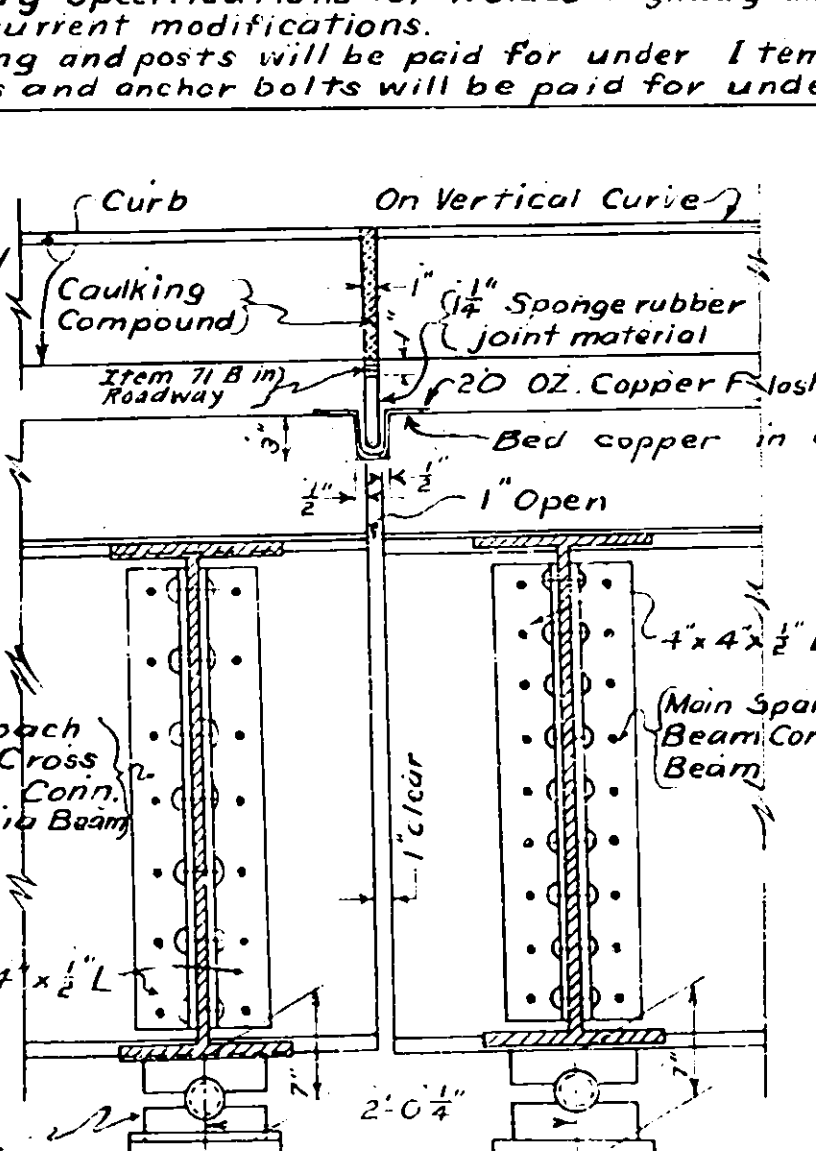 current modifications.
ng and posts will be paid for under Item
s and anchor bolts will be paid for unde
Curb
On Vertical Curve
Caulking
Compound
1"
1 1/4" Sponge rubber
joint material
1"
Item 71 B in
Roadway
20 OZ. Copper Flash
3"
Bed copper in
1/2"
1/2"
1" Open
4" x 4" x 1/2" L
Main Span
Beam Con
Beam
oach
Cross
Conn.
ia Beam
1" clear
4" x 1/2" L
7"
2'-0 1/4"
7"